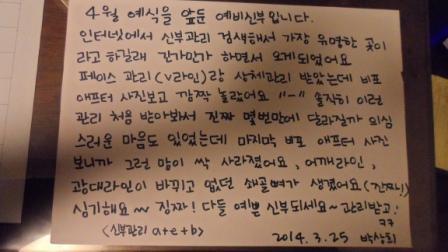 4월 예식을 앞둔 예비신부입니다.
인터넷에서 신부관리 검색해서 가장 유명한 곳이
라고 하길래 긴가민가 하면서 오게되었어요
페이스 관리(V라인)랑 상체관리 받았는데 비포
애프터 사진보고 깜짝 놀랐어요 "-" 솔직히 이런
관리 처음 받아봐서 진짜 몇번만에 달라질까 의심
스러운 마음도 있었는데 마지막 비포 애프터 사진
보니까 그런 맘이 싹 사라졌어요, 어깨라인,
광대라인이 바뀌고 없던 쇄골뼈가 생겼어요(간짜!)
신기해요~ 징짜! 다들 예쁜 신부되세요~ 관리받고!
ㅋㅋ
<신부관리 a+e+b> 2014.3.25 박상희